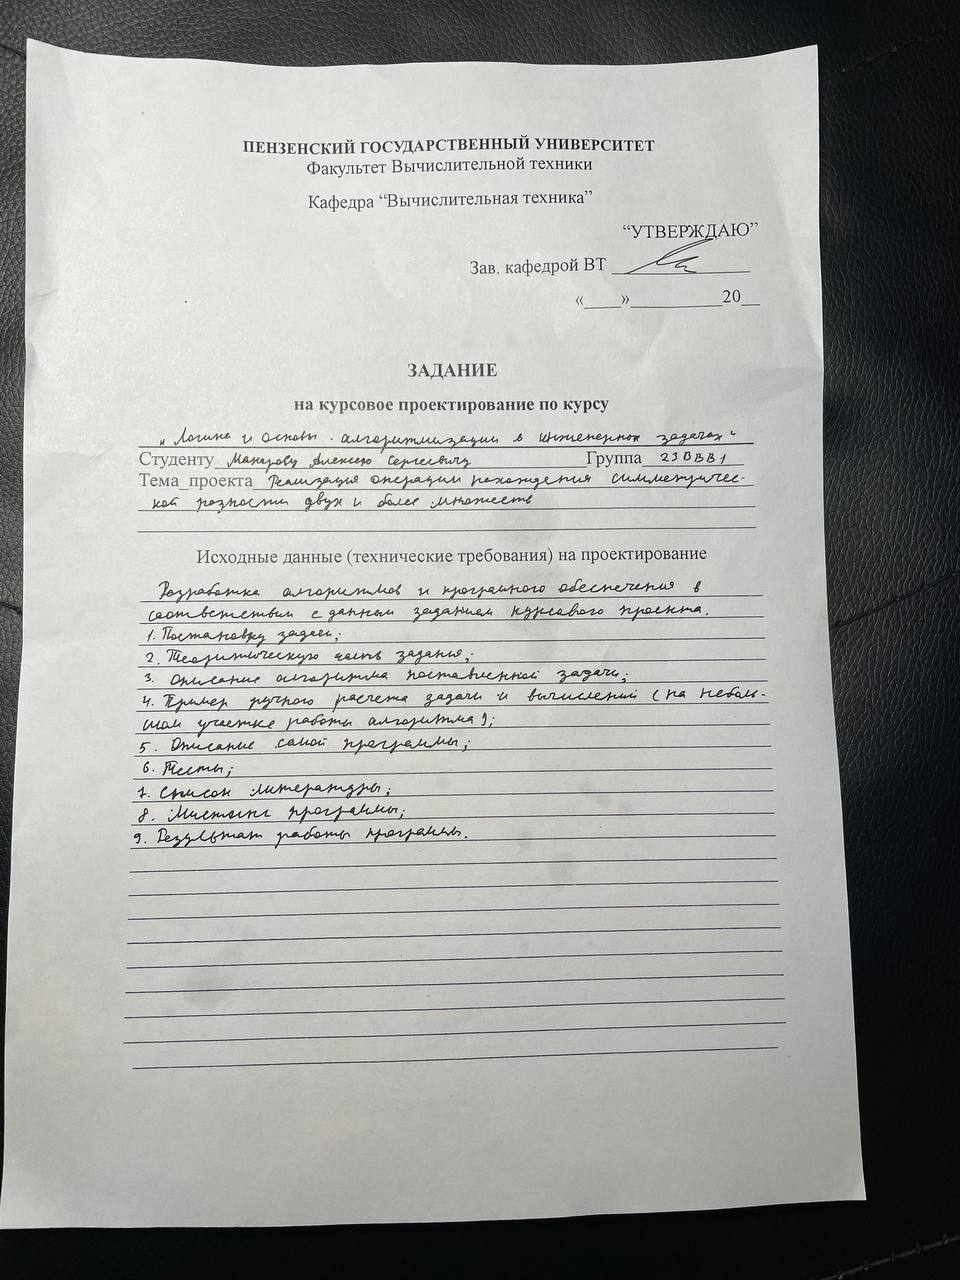 ПЕНЗЕНСКИЙ ГОСУДАРСТВЕННЫЙ УНИВЕРСИТЕТ
Факультет Вычислительной техники
Кафедра “Вычислительная техника”
“УТВЕРЖДАЮ”
Зав. кафедрой ВТ
«____»__________20__
ЗАДАНИЕ
на курсовое проектирование по курсу
„Логика и основы алгоритмизации в инженерных задачах“
Студенту Макарову Алексею Сергеевичу Группа 23ВВВ1
Тема проекта Реализация операции нахождения симметричес-
кой разности двух и более множеств
Исходные данные (технические требования) на проектирование
Разработка алгоритмов и програмного обеспечения в
соответствии с данным заданием курсового проекта.
1. Постановку задачи;
2. Теоритическую часть задания;
3. Описание алгоритма поставленной задачи;
4. Пример ручного расчета задачи и вычислений (на неболь-
шом участке работы алгоритма);
5. Описание самой программы;
6. Тесты;
7. Список литературы;
8. Листинг программы;
9. Результат работы программы.